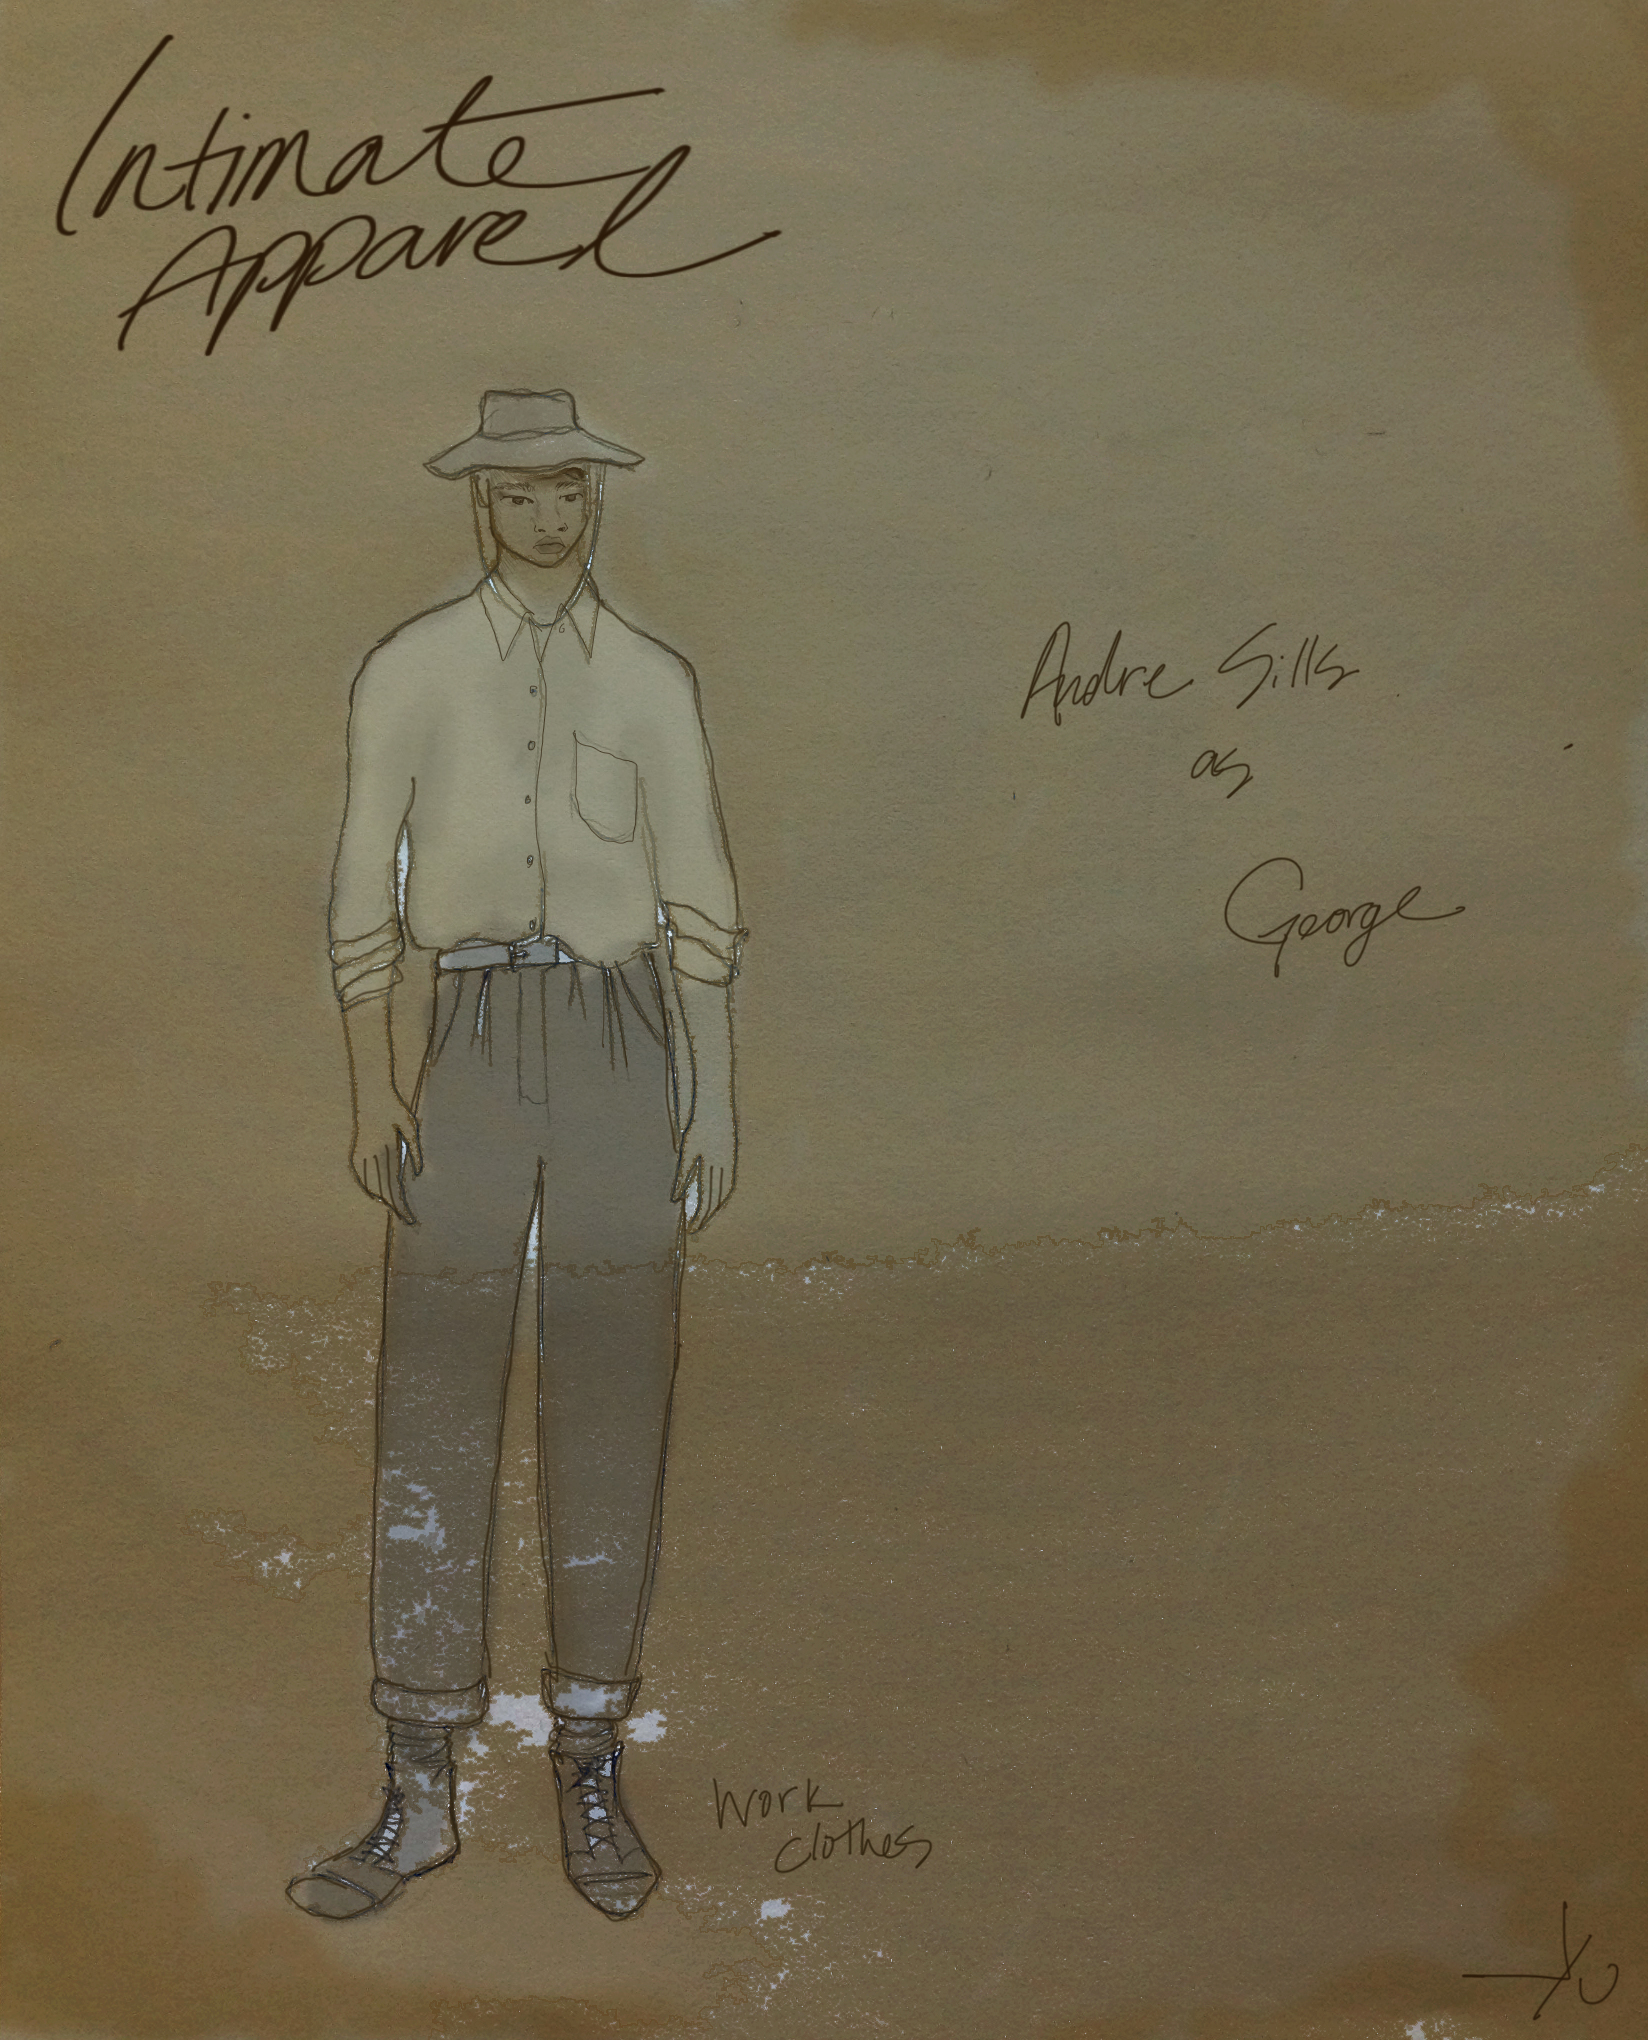 Intimate
Apparel
Andre Sills
as
George
Work
clothes